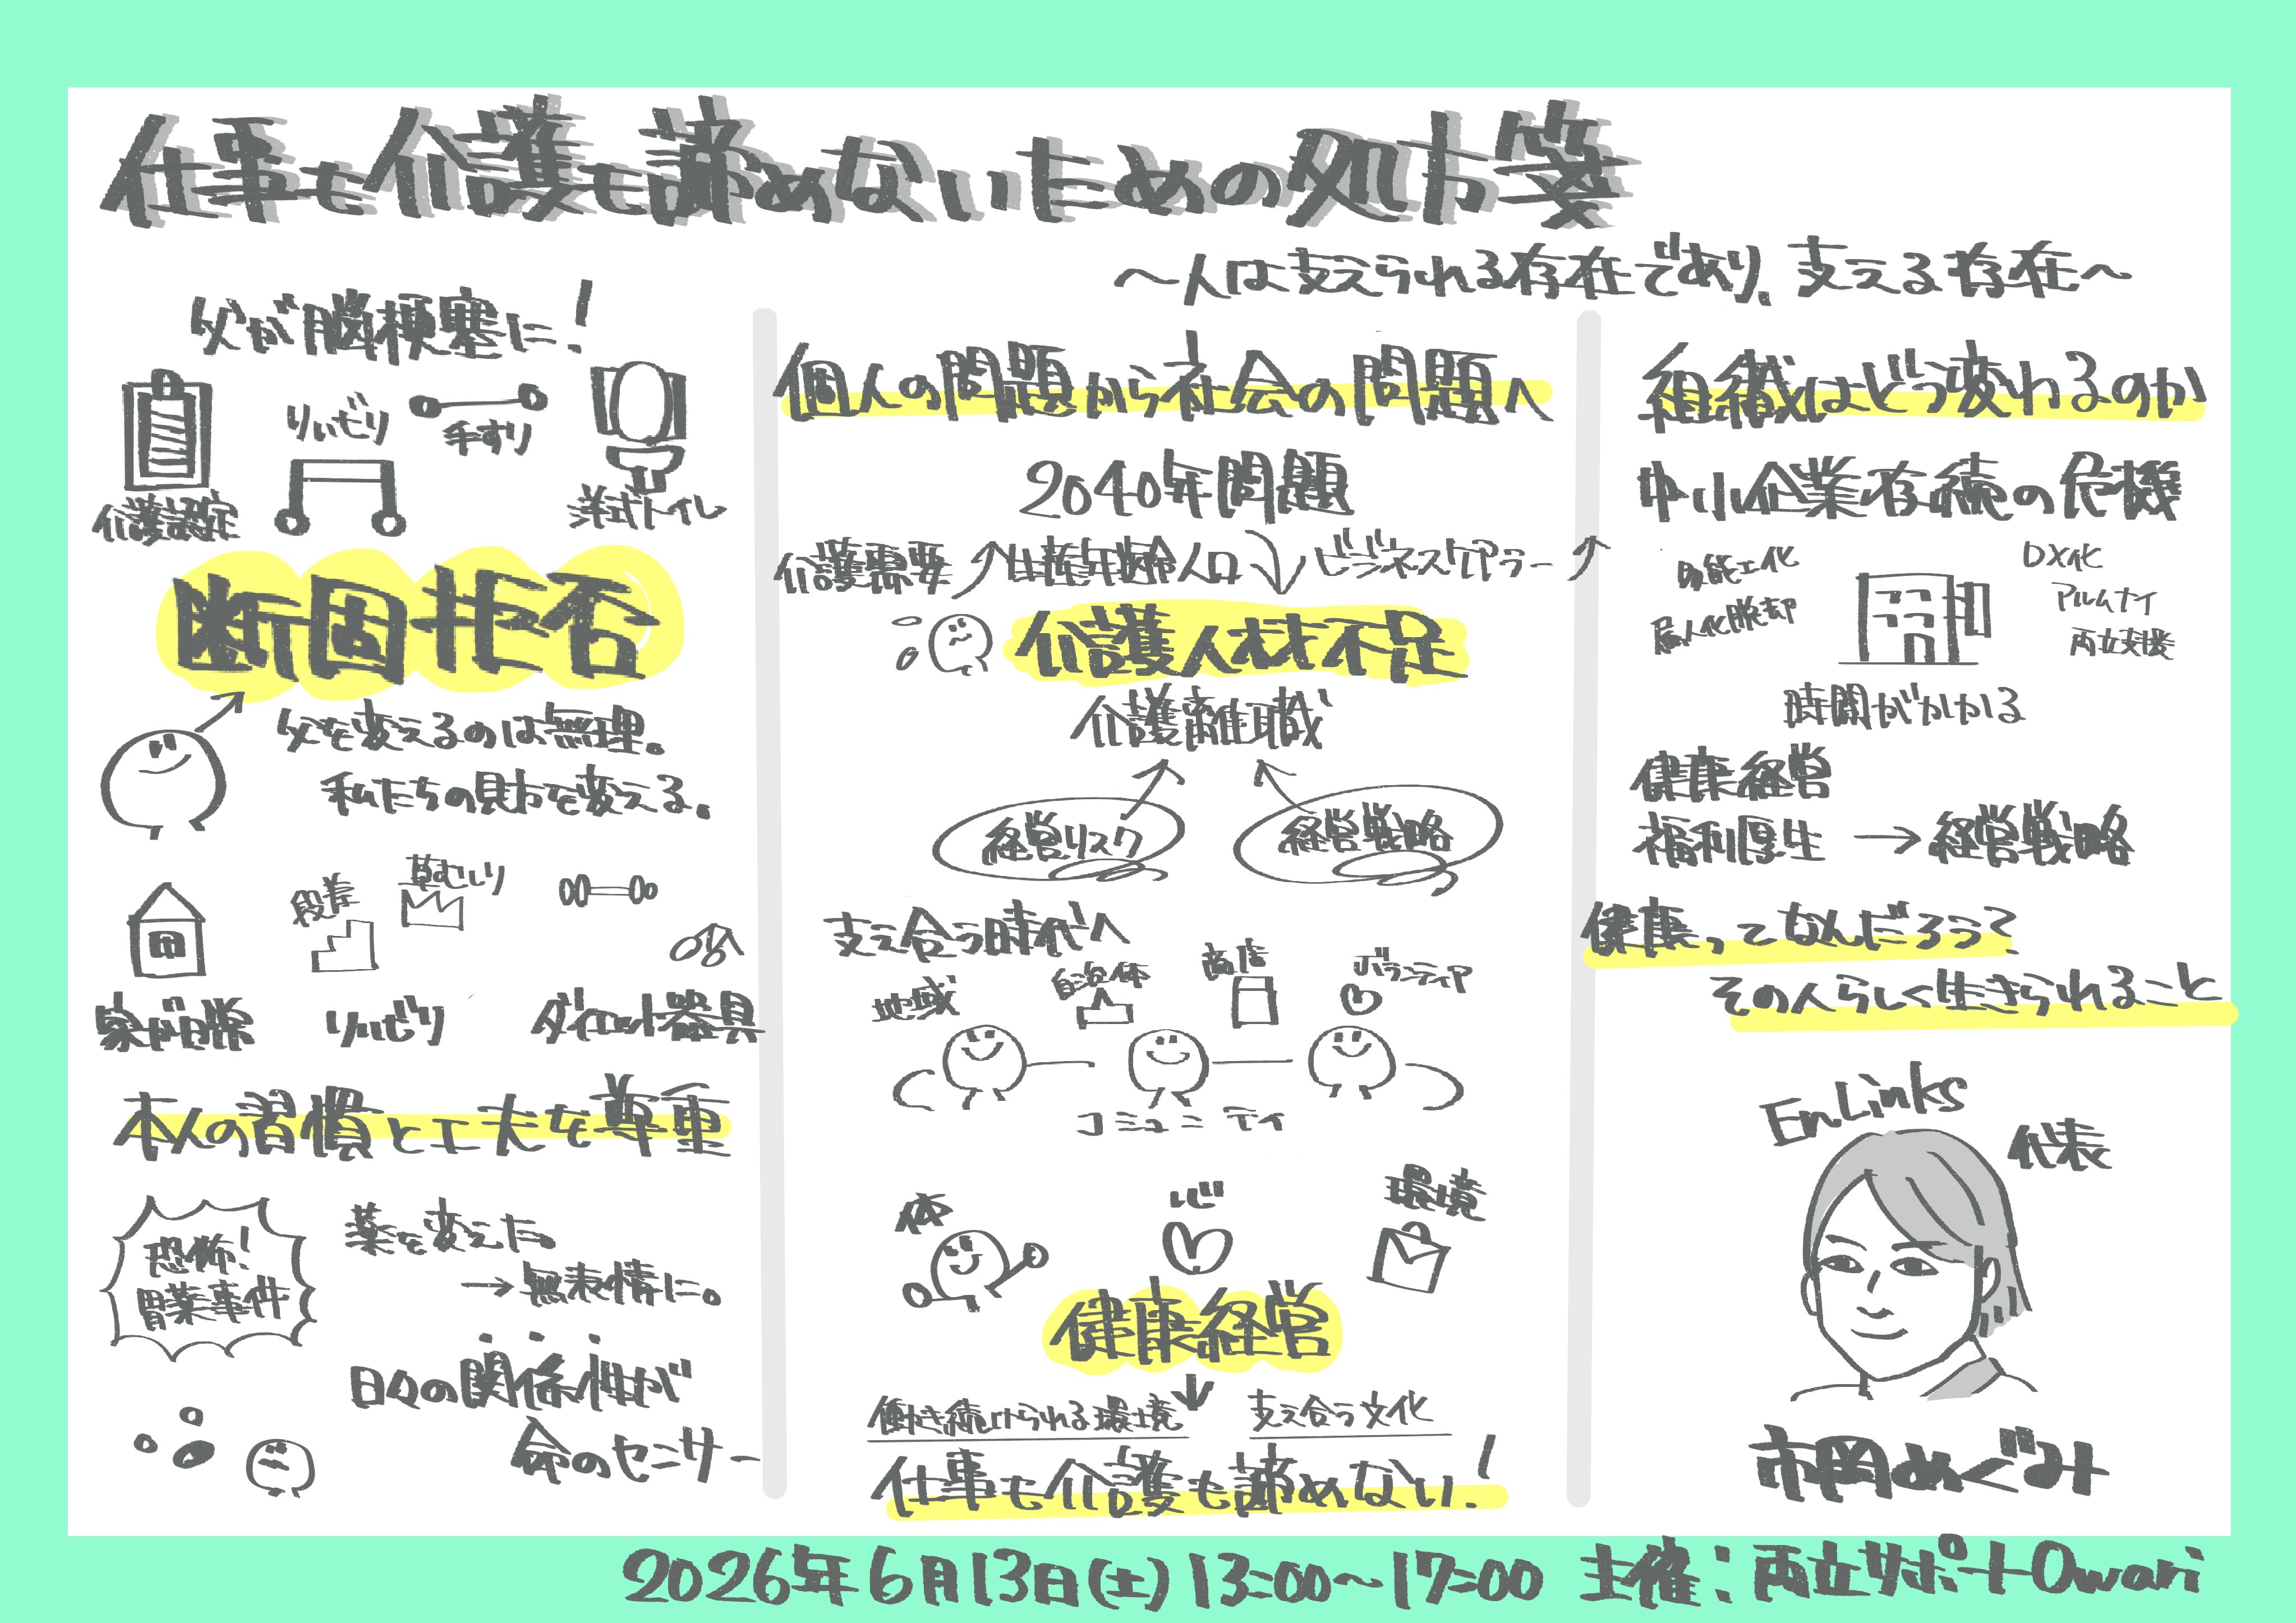 仕事も介護も諦めないための処方箋
〜人は支えられる存在であり、支える存在〜
父が脳梗塞に!
介護認定
リハビリ
手すり
洋式トイレ
断固拒否
父を変えるのは無理。
私たちの見方を変える。
段差
草むしり
家が日常
リハビリ
ダイエット器具
本人の習慣と工夫を尊重
恐怖!
胃薬事件
薬を変えた。
→無表情に。
日々の関係性が
命のセンサー
個人の問題から社会の問題へ
2040年問題
介護需要↗生産年齢人口↘ビジネスケアラー↗
介護人材不足
介護離職
経営リスク
経営戦略
支え合う時代へ
地域
自治体
商店
ボランティア
コミュニティ
体
心
環境
健康経営
↓
働き続けられる環境
支え合う文化
仕事も介護も諦めない!
組織はどう変わるのか
中小企業存続の危機
多能工化
属人化脱却
DX化
アルムナイ
両立支援
時間がかかる
健康経営
福利厚生→経営戦略
健康ってなんだろう?
その人らしく生きられること
EnLinks
代表
市岡めぐみ
2026年6月13日(土)13:00〜17:00 主催:両立サポートOwari